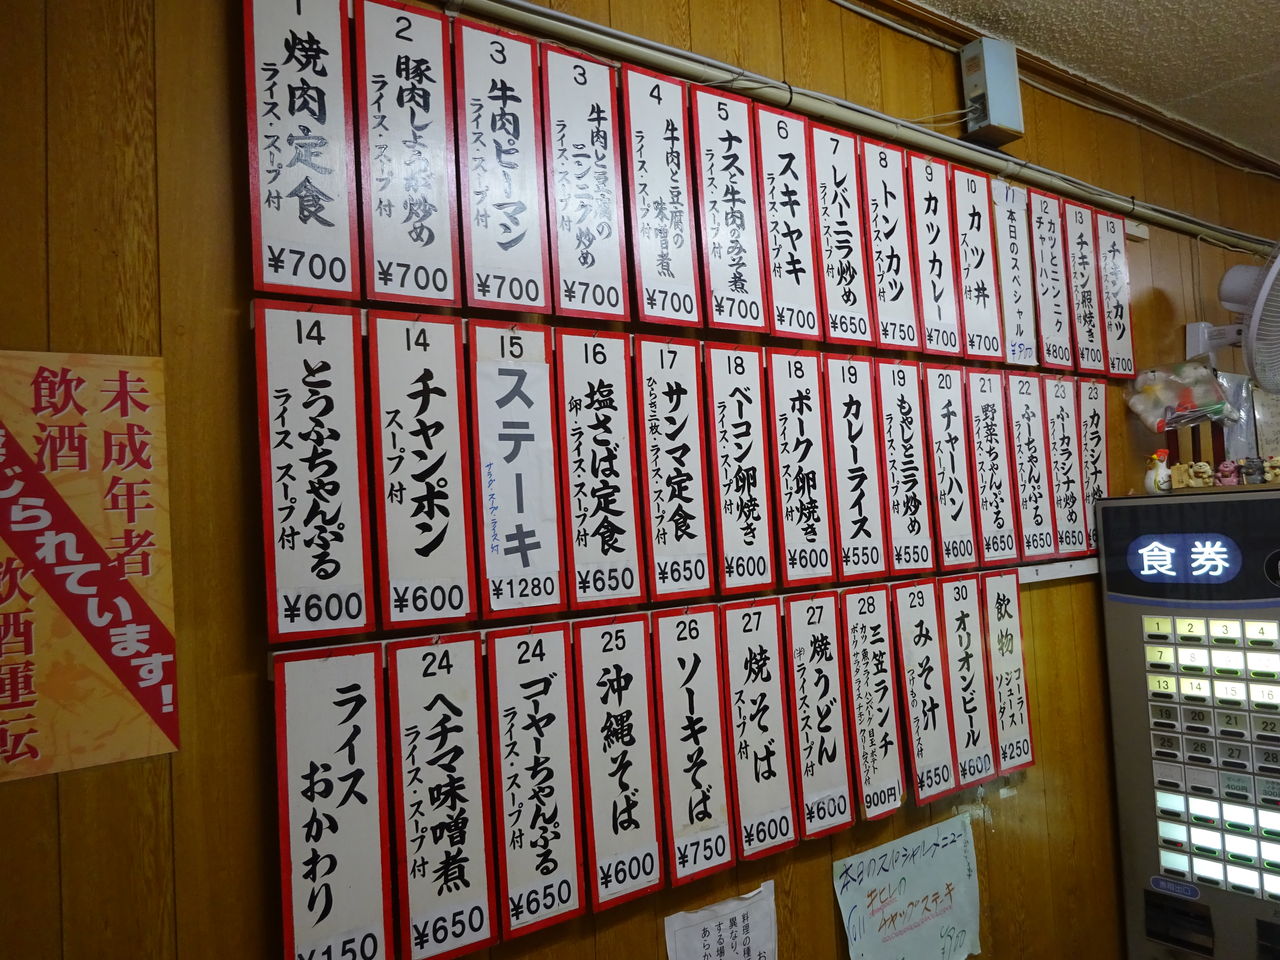 1
焼肉定食
ライス・スープ付
¥700
2
豚肉しょうが炒め
ライス・スープ付
¥700
3
牛肉ピーマン
ライス・スープ付
¥700
3
牛肉と豆腐の
ニンニク炒め
ライス・スープ付
¥700
4
牛肉と豆腐の
味噌煮
ライス・スープ付
¥700
5
ナスと牛肉のみそ煮
ライス・スープ付
¥700
6
スキヤキ
ライス・スープ付
¥700
7
レバニラ炒め
ライス・スープ付
¥650
8
トンカツ
ライス・スープ付
¥750
9
カツカレー
¥700
10
カツ丼
スープ付
¥700
11
本日のスペシャル
¥900
12
カツとニンニク
チャーハン
¥800
13
チキン照焼き
ライススープ付
¥700
13
チキンカツ
ライススープ付
¥700
14
とうふちゃんぷる
ライス スープ付
¥600
14
チャンポン
スープ付
¥600
15
ステーキ
サラダ・スープ・ライス付
¥1280
16
塩さば定食
卵・ライス・スープ付
¥650
17
サンマ定食
ひらき二枚・ライス・スープ付
¥650
18
ベーコン卵焼き
ライス・スープ付
¥600
18
ポーク卵焼き
ライス・スープ付
¥600
19
カレーライス
¥550
19
もやしとニラ炒め
ライス・スープ付
¥550
20
チャーハン
スープ付
¥600
21
野菜ちゃんぷる
ライス・スープ付
¥650
22
ふーちゃんぷる
ライス・スープ付
¥650
23
ふーカラシナ炒め
ライス・スープ付
¥650
23
カラシナ炒
ライス・スープ付
ライス
おかわり
¥150
24
ヘチマ味噌煮
ライス・スープ付
¥650
24
ゴーヤーちゃんぷる
ライス・スープ付
¥650
25
沖縄そば
¥600
26
ソーキそば
¥750
27
焼そば
スープ付
¥600
27
焼うどん
(半)ライス・スープ付
¥600
28
三笠ランチ
900円
29
みそ汁
つけもの ライス付
¥550
30
オリオンビール
¥600
飲物
コーラー
ジュース
ソーダー
¥250
未成年者
飲酒
じられています!
飲酒運転
食券
1 2 3 4
7 8 9 10
13 14 15 16
19 20 21 22
25 26 27 28
本日のスペシャルメニュー
牛ヒレの
チャップステーキ
¥900